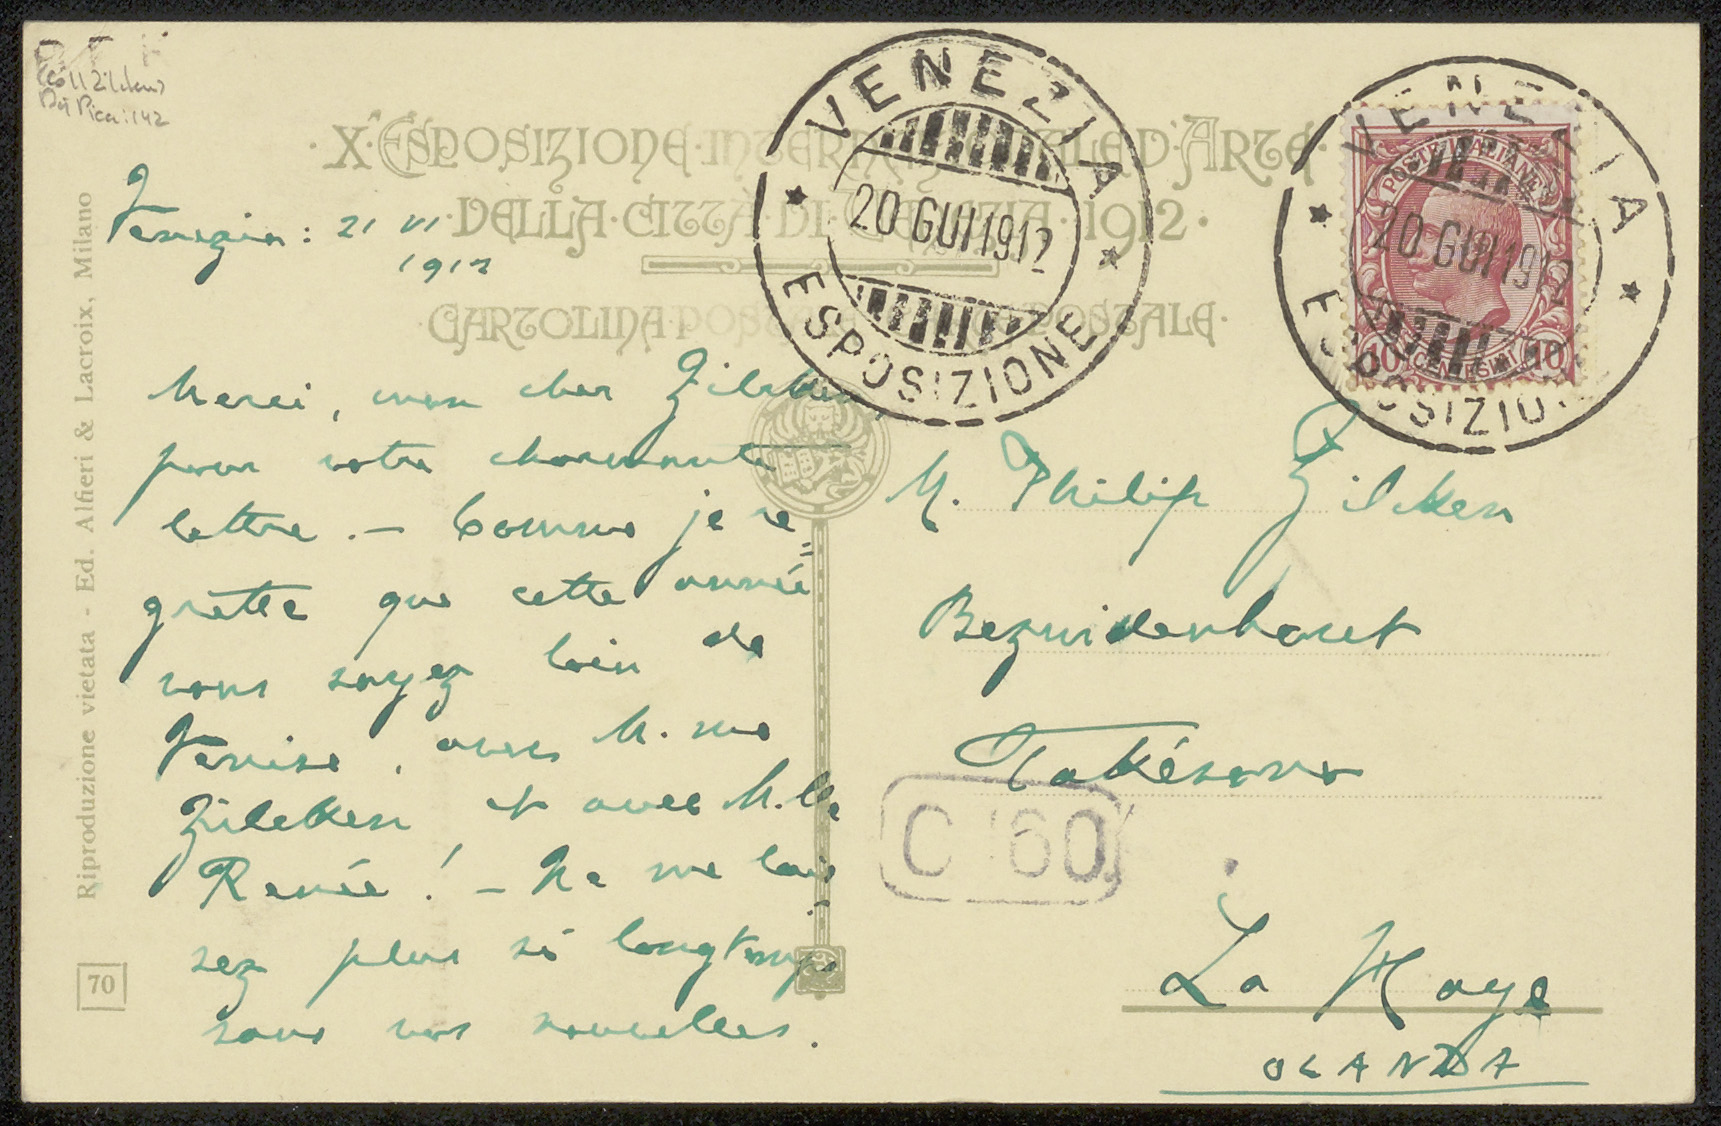 Coll Zilcken
X. ESPOSIZIONE INTERNAZIONALE D'ARTE
DELLA CITTÀ DI VENEZIA 1912
CARTOLINA POSTALE POSTALE
VENEZIA
20 GIU 1912
ESPOSIZIONE
VENEZIA
20 GIU 1912
ESPOSIZIONE
POSTE ITALIANE
10 CENTESIMI 10
Venezia: 21 VI
1912
Merci, mon cher Zilcken,
pour votre charmante
lettre. – Comme je re=
grette que cette année
vous soyez loin de
Venise, avec M.me
Zilcken et avec M.lle
Renée! – Ne me lais-
sez plus si longtemps
sans vos nouvelles.
M. Philip Zilcken
Bezuidenhout
La Haye
OLANDA
C 60
Riproduzione vietata - Ed. Alfieri & Lacroix, Milano
70